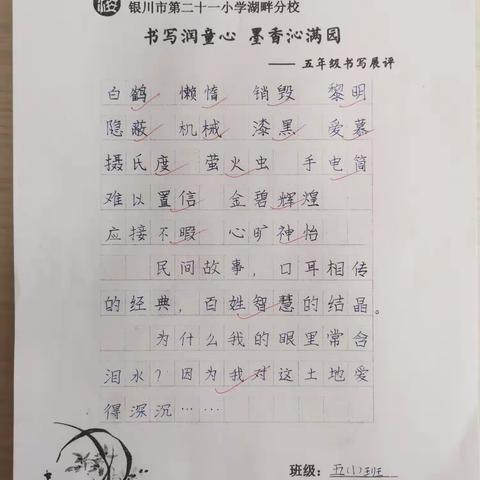 银川市第二十一小学湖畔分校
书写润童心 墨香沁满园
—— 五年级书写展评
白鹤 懒惰 销毁 黎明
隐蔽 机械 漆黑 爱慕
摄氏度 萤火虫 手电筒
难以置信 金碧辉煌
应接不暇 心旷神怡
民间故事，口耳相传
的经典，百姓智慧的结晶。
为什么我的眼里常含
泪水？因为我对这土地爱
得深沉……
班级：五(1)班